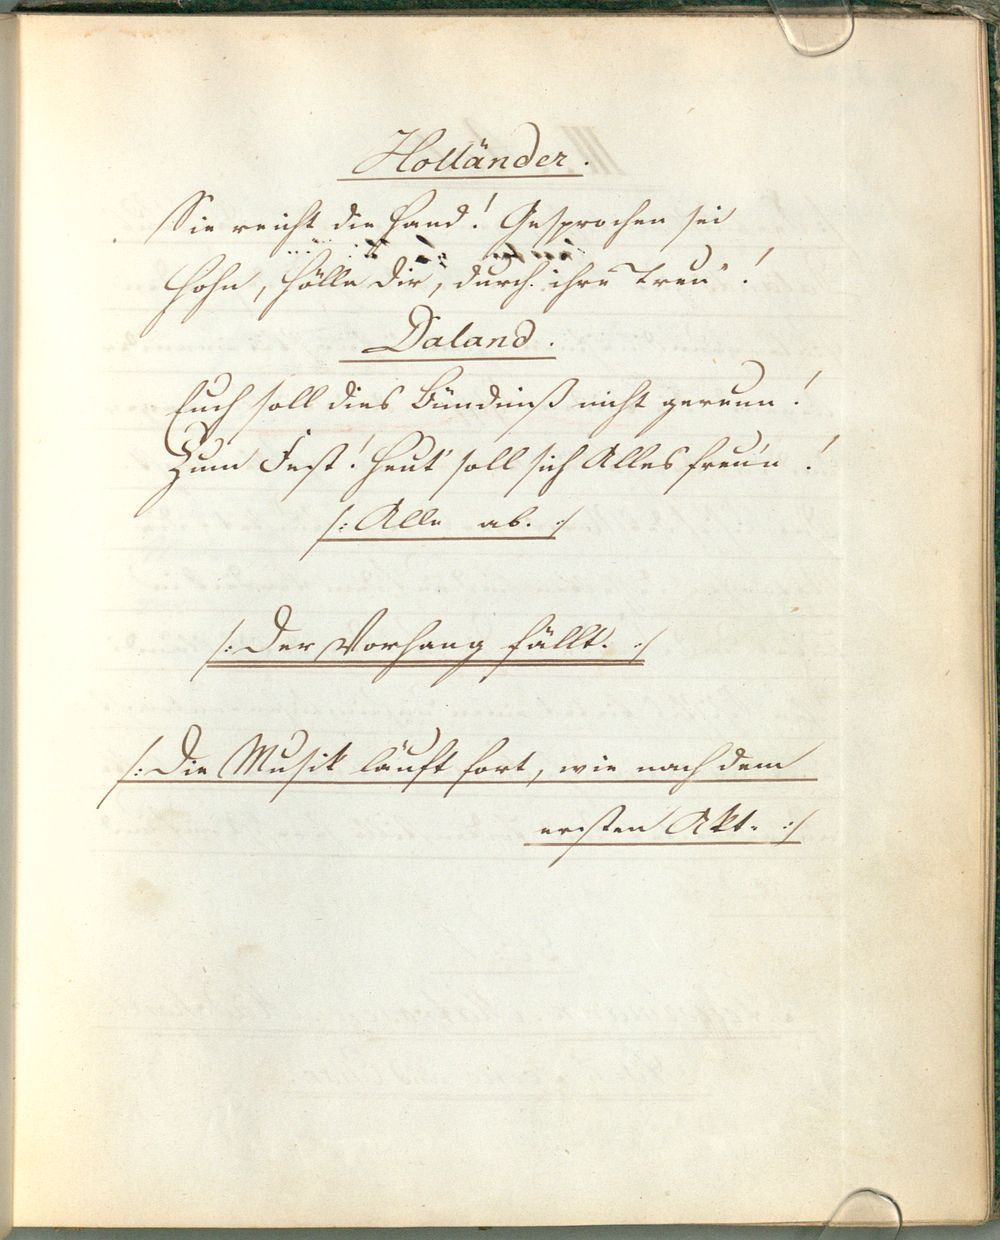 Holländer.
Sie reicht die Hand! Gesprochen sei
Hohn, Hölle dir, durch ihre Treu'!
Daland.
Euch soll dies Bündniß nicht gereun!
Zum Fest! Heut' soll sich Alles freu'n!
/: Alle ab. :/
/: Der Vorhang fällt. :/
/: Die Musik läuft fort, wie nach dem
ersten Akt. :/